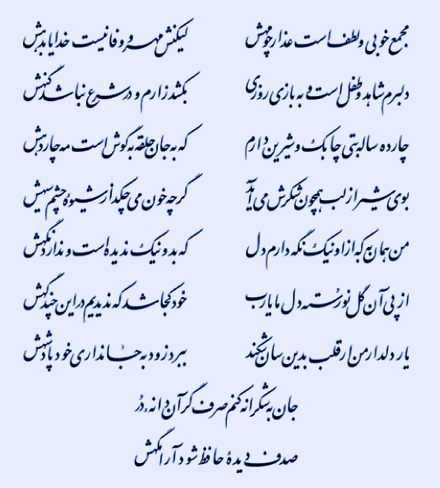 مجمع خوبی و لطف است عذار چو مهش لیکنش مهر و وفا نیست خدایا بدهش
دلبرم شاهد و طفل است و به بازی روزی بکشد زارم و در شرع نباشد گنهش
چارده ساله بتی چابک و شیرین دارم که به جان حلقه به گوش است مه چاردهش
بوی شیر از لب همچون شکرش می‌آید گرچه خون می‌چکد از شیوهٔ چشم سیهش
من همان به که ازو نیک نگه دارم دل که بد و نیک ندیده‌است و ندارد نگهش
از پی آن گل نورسته دل ما یارب خود کجا شد که ندیدیم درین چند گهش
یار دلدار من ار قلب بدین سان شکند ببرد زود به جانداری خود پادشهش
جان به شکرانه کنم صرف گر آن دانهٔ در
صدف دیدهٔ حافظ شود آرامگهش